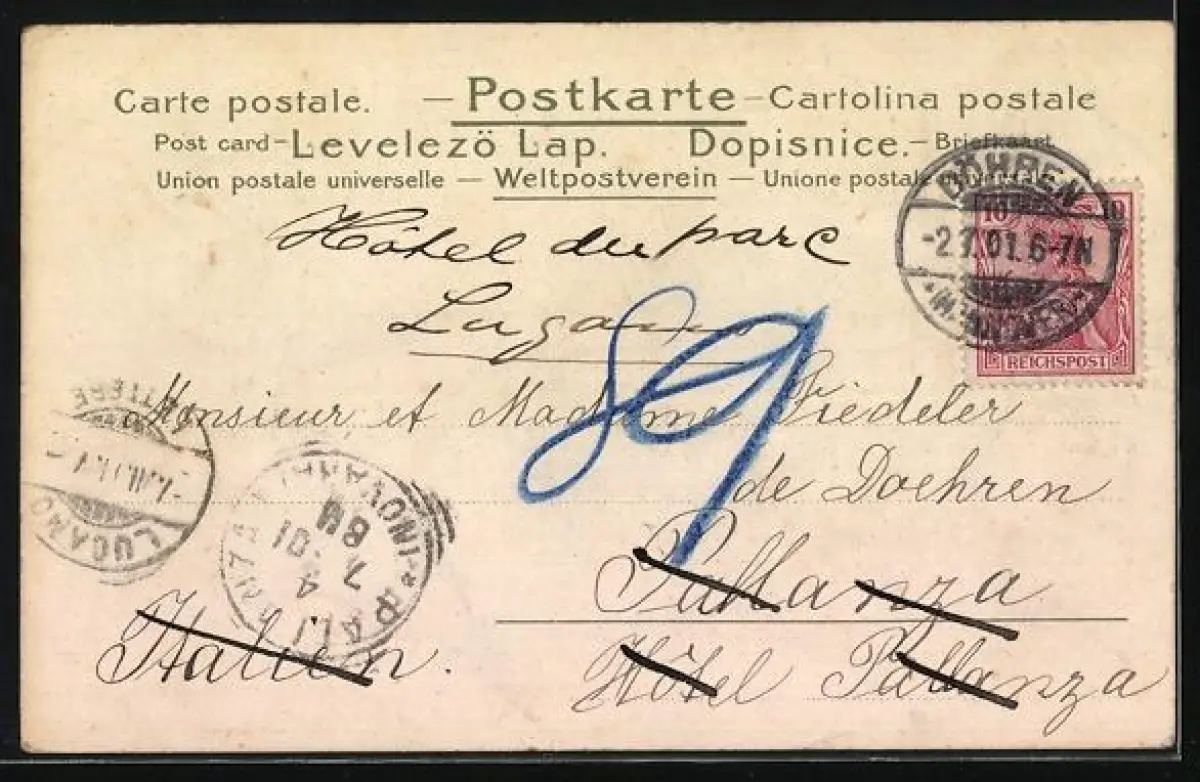 Carte postale. — Postkarte — Cartolina postale
Post card — Levelező Lap. Dopisnice. — Briefkaart
Union postale universelle — Weltpostverein — Unione postale universelle
DÖHREN
10 10
-2.7.01.6-7N
REICHSPOST
Hôtel du parc
Lugano
89
Monsieur et Madame Fiedeler
de Doehren
Pallanza
Hôtel Pallanza
Italien.
LUGANO
PALLANZA
4
7
01
8M